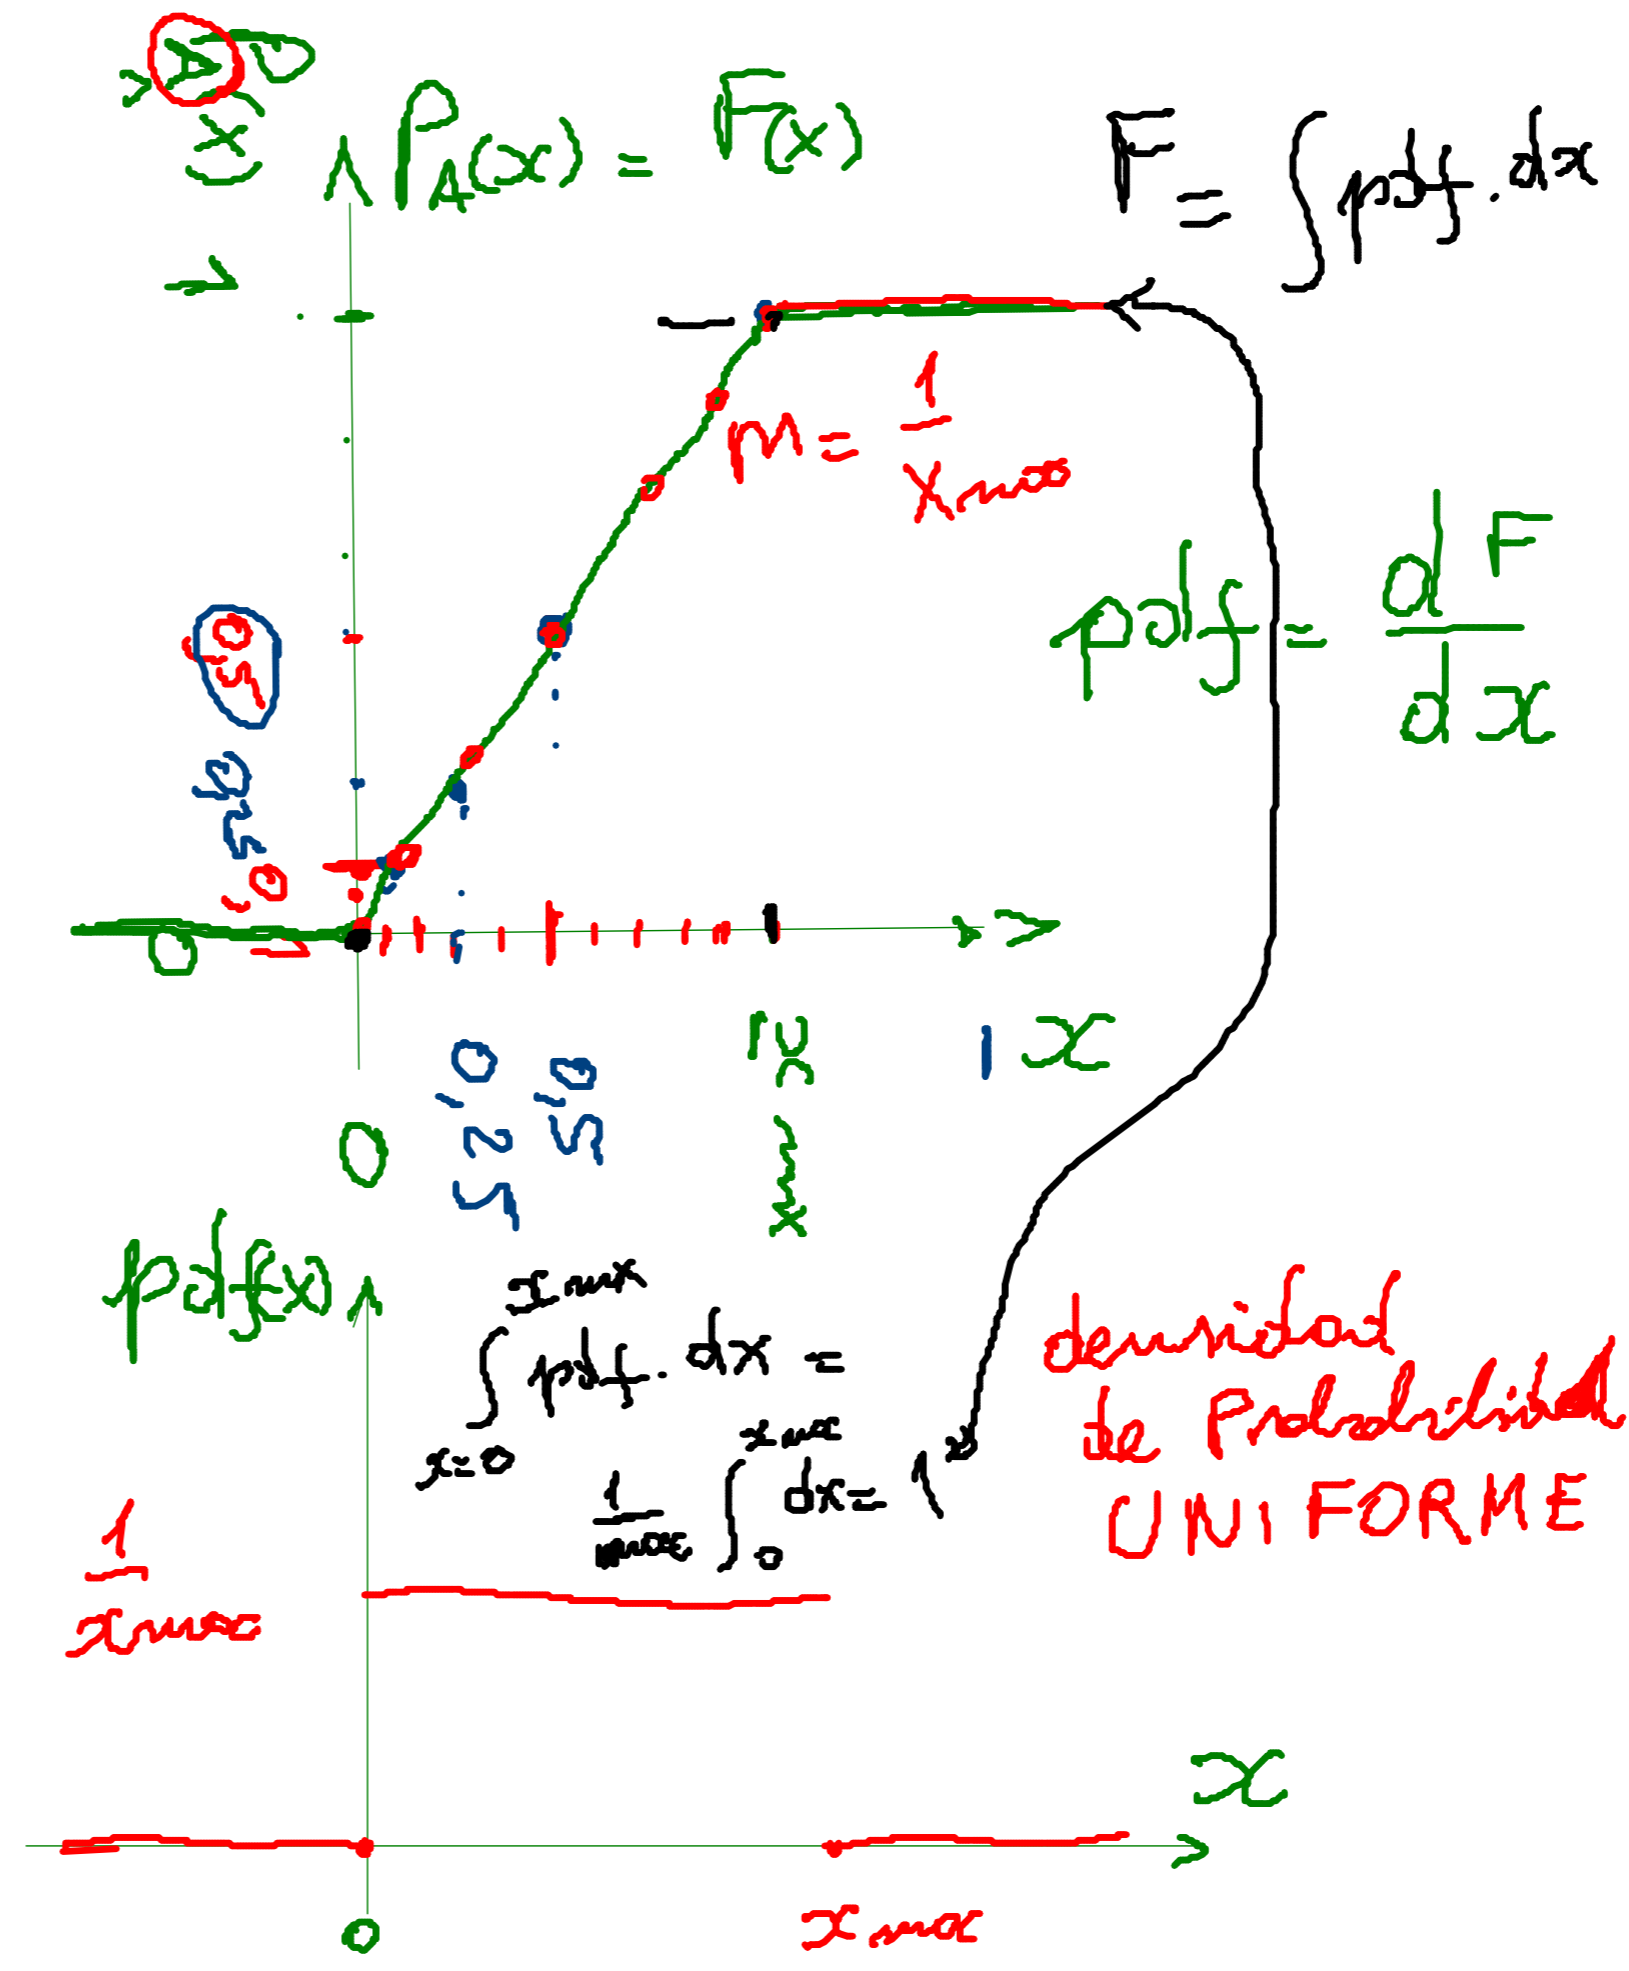 P_A(x) = F(x)
F = ∫ pdf . dx
1
m = 1/xmax
pdf = dF/dx
0,5
0,25
0,1
0
0
0,25
0,5
xmax
1 x
pdf(x)
∫_{x=0}^{xmax} pdf . dx =
1/xmax ∫_0^{xmax} dx = 1
densidad
de Probabilidad
UNIFORME
1/xmax
x
0
xmax